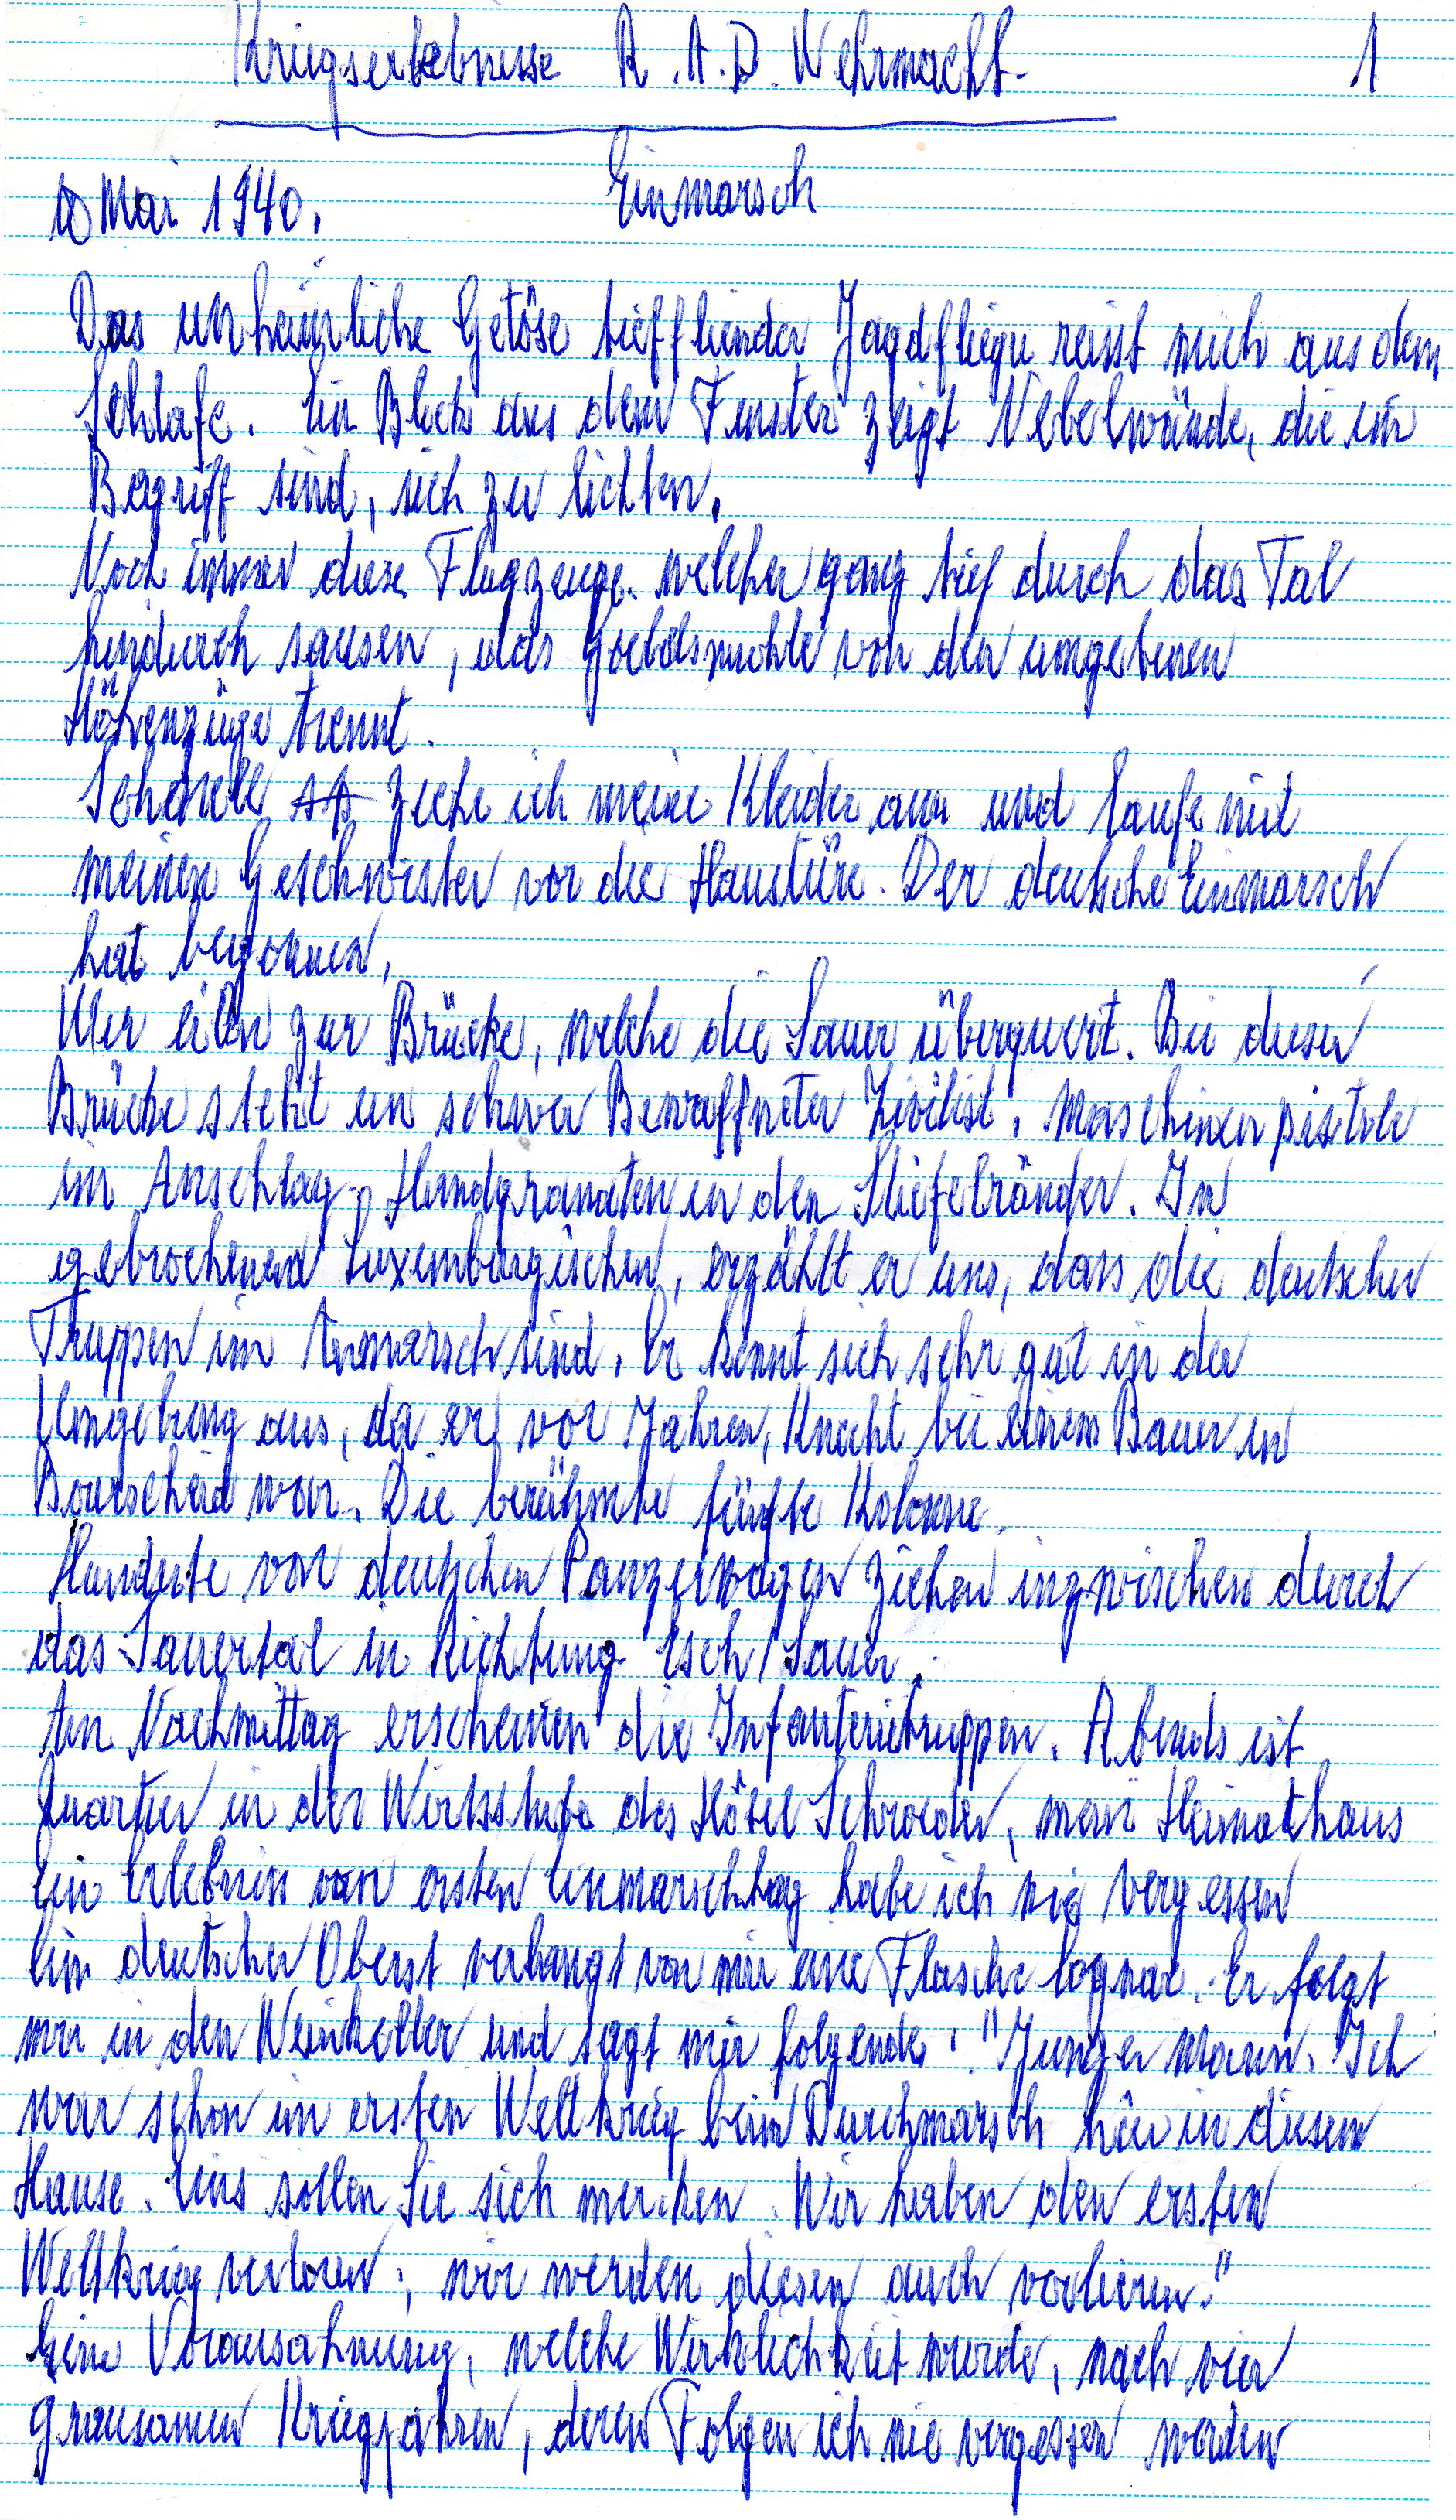 Kriegserlebnisse R.A.D. Wehrmacht. 1
10 Mai 1940. Einmarsch
Das unheimliche Getöse tieffliender Jagdflieger reisst mich aus dem
Schlafe. Ein Blick aus dem Fenster zeigt Nebelwände, die im
Begriff sind, sich zu lichten.
Noch immer diese Flugzeuge. welcher ganz tief durch das Tal
hindurch sausen, das Goebelsmühle von den umgebenen
Höhenzüge trennt.
Schnell ziehe ich meine Kleider an und laufe mit
meinen Geschwister vor die Haustüre. Der deutsche Einmarsch
hat begonnen.
Wir eilen zur Brücke, welche die Sauer überquert. Bei dieser
Brücke steht ein schwer Bewaffneter Zivilist, Maschinenpistole
im Anschlag, Handgranaten in den Stiefelränder. In
gebrochenem Luxemburgischen, erzählt er uns, dass die deutschen
Truppen im Anmarsch sind. Er kennt sich sehr gut in der
Umgebung aus, da er vor Jahren, Knecht bei einem Bauer in
Bourscheid war. Die berühmte fünfte Kolonne.
Hunderte von deutschen Panzerwagen ziehen inzwischen durch
das Sauertal in Richtung Esch/Sauer.
Am Nachmittag erscheinen die Infanterietruppen. Abends ist
Quartier in der Wirtsstube des Hôtel Schroeder, mein Heimathaus
Ein Erlebnis vom ersten Einmarschtag habe ich nie vergessen
Ein deutscher Oberst verlangt von mir eine Flasche Cognac. Er folgt
mir in den Weinkeller und sagt mir folgendes: "Junger Mann. Ich
war schon im ersten Weltkrieg beim Durchmarsch hier in diesem
Hause. Eins sollen Sie sich merken. Wir haben den ersten
Weltkrieg verloren; wir werden diesen auch verlieren."
Eine Vorausahnung, welche Wirklichkeit wurde, nach vier
grausamen Kriegsjahren, deren Folgen ich nie vergessen werden